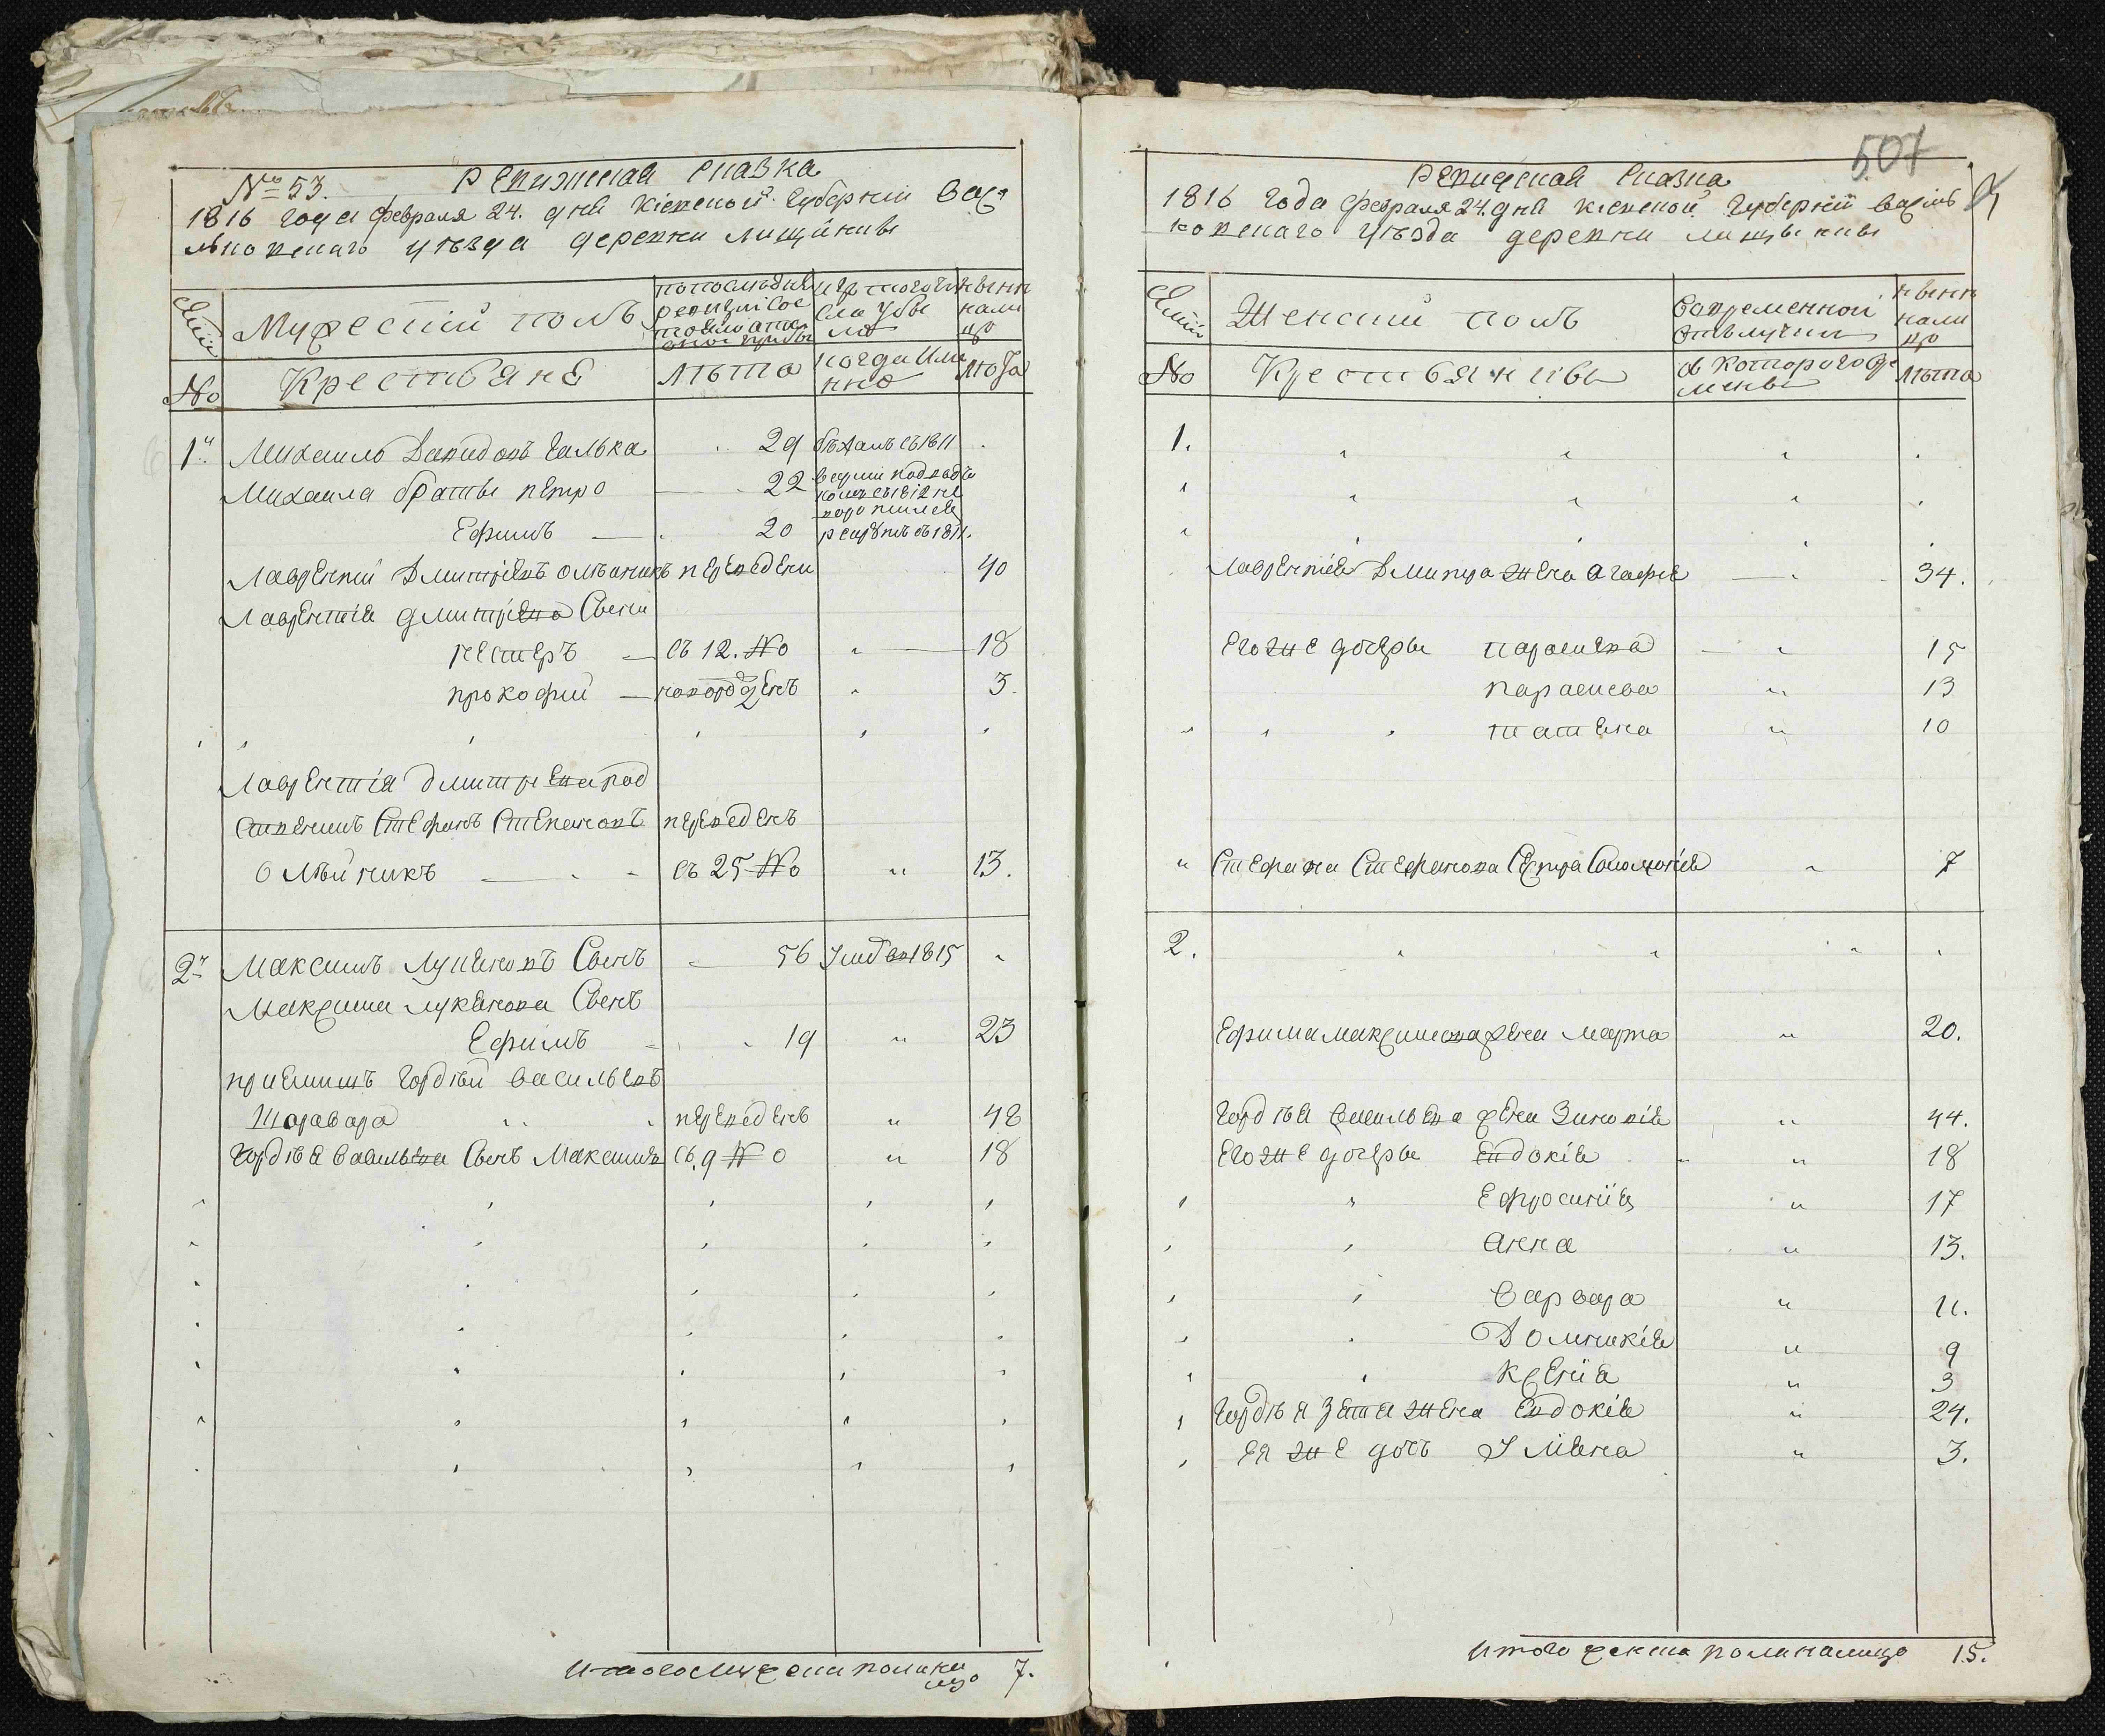 № 53. Ревижская сказка
1816 года февраля 24. дня Кіевской Губерніи Васи
льковскаго уезда деревни Лищинкы
Семіи
Мужеский полъ
По последней
ревизіи сос
тояло и
Изъ того чи
сла убы
ло
Нынѣ
нали
цо
№
Крестьяне
Лѣта
когда Име
нно
Лѣта
1й Михаило Давидовъ Галька 29 бѣжалъ съ 1811
Михаила братъ Петро 22 не
20
Ефимъ съ 1811.
Лаврентий Дмитріевъ Олѣйникъ переведени 40
Лаврентія Дмитріева Сыни
Нестеръ съ 12. № 18
Прокофий новорожденъ 3.
Лаврентія Дмитріева род
ственникъ Стефанъ Стефановъ переведенъ
Олѣйникъ съ 25 № 13.
2й Максимъ Лукяновъ Сынъ 56 Умеръ 1815
Максима Лукянова Сынъ
Ефимъ 19 23
приемишъ Гордѣй Васильевъ
Шаравара переведенъ 48
Гордѣя Васильева Сынъ Максимъ съ 9 № 18
Итого мужеска пола на
лицо 7.
507
Ревижская Сказка
1816 года февраля 24 дня Кіевской Губерніи Василь
ковскаго уѣзда деревни Лищинкы
Семіи
Женский полъ
Во временной
отлучки
Нынѣ
нали
цо
№
Крестьянкы
съ Которого вре
мены
Лѣта
1.
Лаврентія Дмитра жена Агафія 34.
Его же дочеры Парасцева 15
Парасцева 13
татяна 10
Стефана Стефанова Сестра Соломонія 7
2.
Ефима Максимова жена Марта 20.
Гордѣя Васильева жена Зиновія 44.
Его же дочеры Евдокія 18
Ефросинія 17
Анна 13.
Варвара 11.
Домникія 9
Ксенія 3
Гордѣя Зятя жена Евдокія 24.
Ея же дочъ Уліяна 3.
Итого женска пола налицо 15.